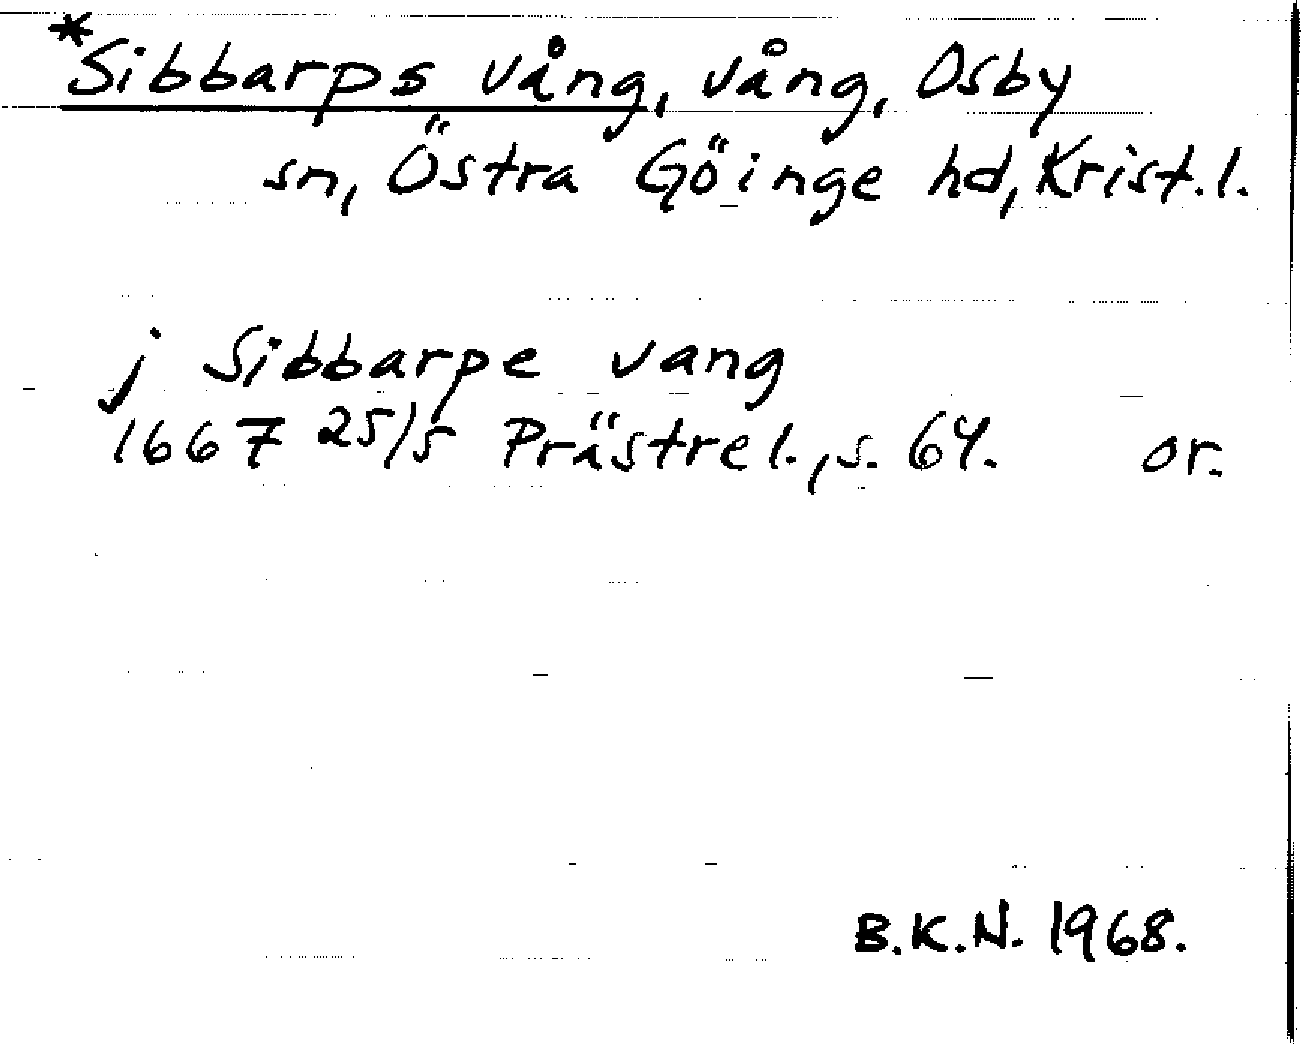 *Sibbarps vång, vång, Osby
sn, Östra Göinge hd, Krist.l.
j Sibbarpe vang
1667 25/5 Prästrel., s. 64. or.
B.K.N. 1968.